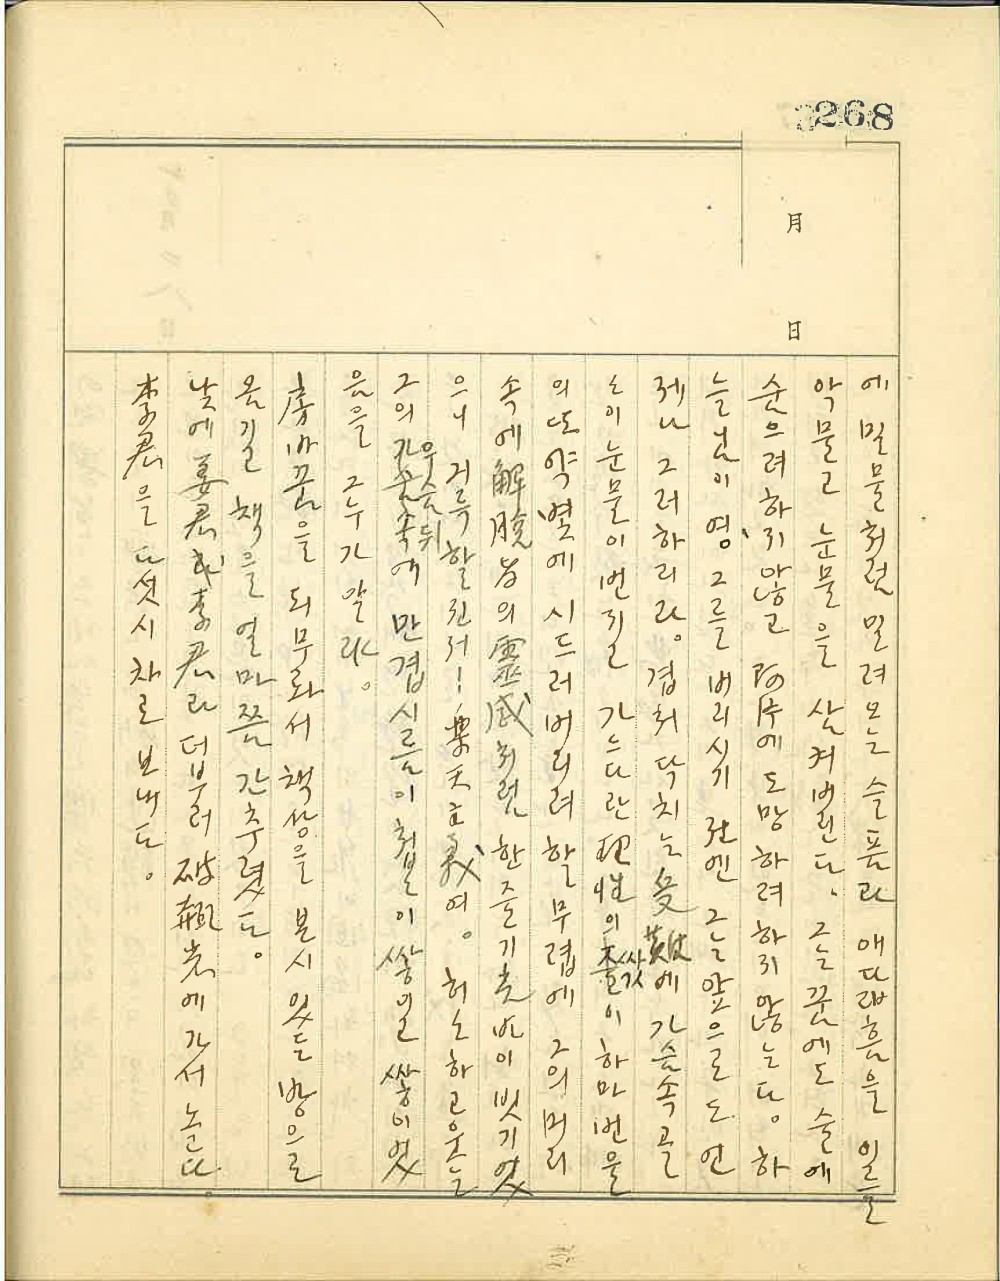 268
月
日
에 밀물처럼 밀려오는 슬픔과 애다로흠을 일를
악물고 눈물을 삼켜버린다. 그는 꿈에도 술에
숨으려하지 않고 阿片에 도망하려 하지 않는다. 하
늘님이 영영 그를 버리시기 전엔 그는 앞으로도 언
제나 그러하리라. 겹쳐 닥치는 受難에 가슴속 골
스이 눈물이 번지길 가느다란 理性의 싹이 하마 번을
의 또약볕에 시드러버리려 할 무렵에 그의 머리
속에 解脫者의 靈感처럼 한줄기 촛비이 빗기었
으니 거룩할진저! 樂天主義여. 허소하고 웃는
그의 웃음 뒤에 만겹시름이 첩첩이 쌓일 쌓이었
음을 그 누가 알랴.
房바꿈을 되무와서 책상을 본시 있든 방으로
옮기고 책을 얼마쯤 간추렸다.
낮에 姜君 李君과 더부러 破顔 에 가서 논다.
李君을 다섯시차로 보내다.